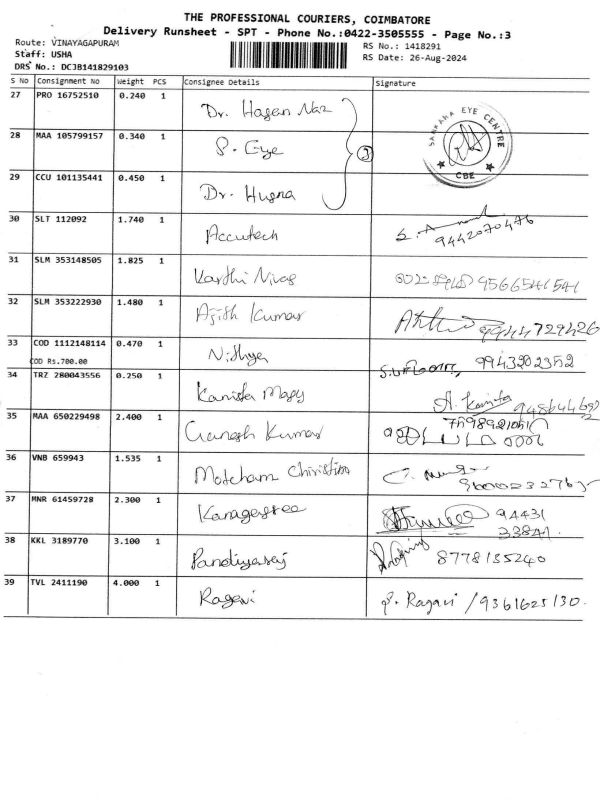 THE PROFESSIONAL COURIERS, COIMBATORE
Delivery Runsheet - SPT - Phone No.:0422-3505555 - Page No.:3
Route: VINAYAGAPURAM
Staff: USHA
DRS No.: DCJB141829103
RS No.: 1418291
RS Date: 26-Aug-2024
S No Consignment No Weight PCS Consignee Details Signature
27 PRO 16752510 0.240 1 Dr. Hasan Naz
28 MAA 105799157 0.340 1 S. Eye
3
SANKARA EYE CENTRE
CBE
29 CCU 101135441 0.450 1 Dr. Husna
30 SLT 112092 1.740 1 Accutech
9442070476
31 SLM 353148505 1.825 1 Karthi Nivas 9566541541
32 SLM 353222930 1.480 1 Ajith Kumar 9944729426
33 COD 1112148114 0.470 1 Nithya 9943202352
COD Rs.700.00
34 TRZ 280043556 0.250 1 Kanista Mary
35 MAA 650229498 2.400 1 Ganesh Kumar
36 VNB 659943 1.535 1 Motcham Christina
37 MNR 61459728 2.300 1 94431
33841
38 KKL 3189770 3.100 1 Pandiyaraj 8778135240
39 TVL 2411190 4.000 1 Ragavi P. Ragavi / 9361625130